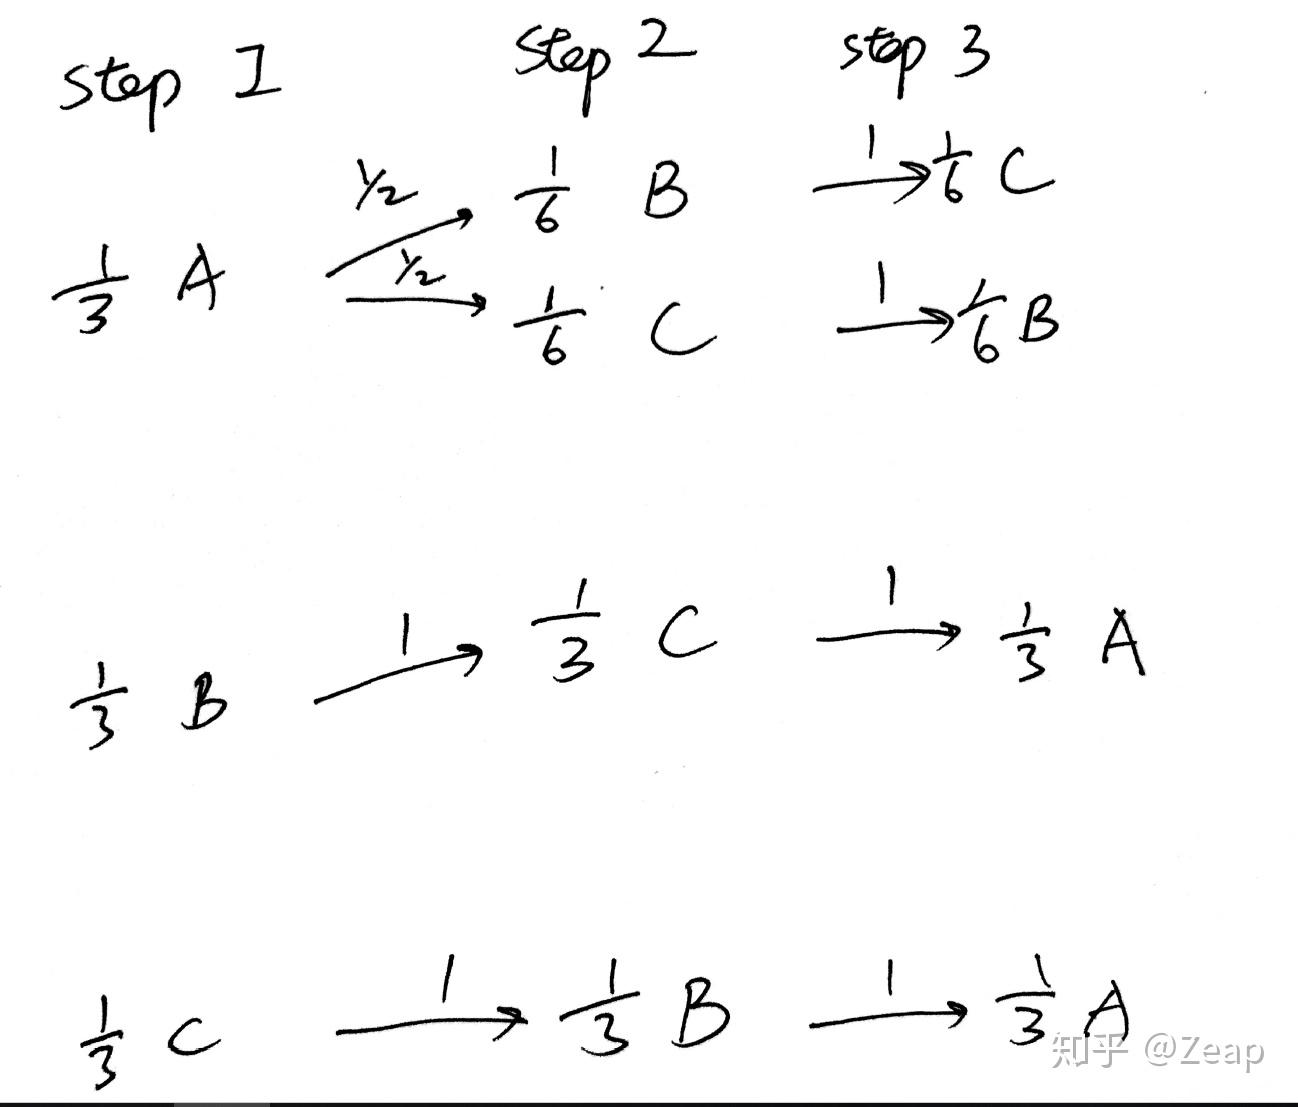 step 1 step 2 step 3
1/2 1/6 B 1 1/6 C
1/3 A 1/2 1/6 C 1 1/6 B
1/3 B 1 1/3 C 1 1/3 A
1/3 C 1 1/3 B 1 1/3 A
知乎 @Zeap